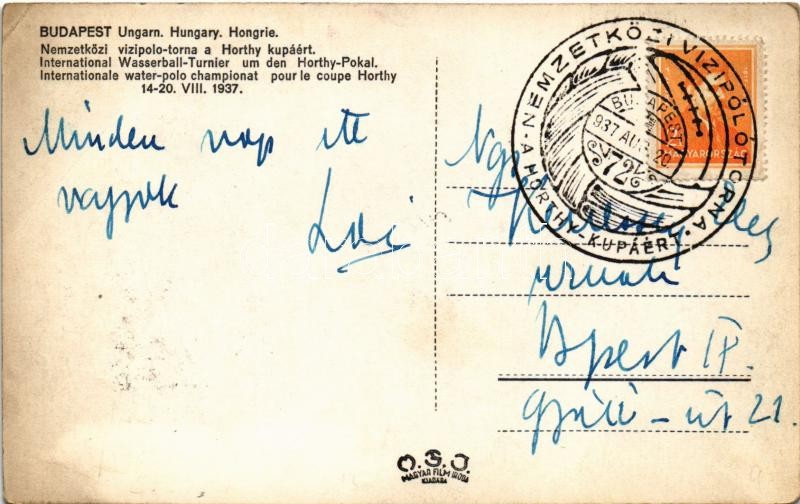 BUDAPEST Ungarn. Hungary. Hongrie.
Nemzetközi vizipolo-torna a Horthy kupáért.
International Wasserball-Turnier um den Horthy-Pokal.
Internationale water-polo championat pour le coupe Horthy
14-20. VIII. 1937.
Minden nap itt
vagyok
NEMZETKÖZI VIZIPÓLÓ TORNA
A HORTHY-KUPÁÉRT
BUDAPEST
937 AUG 20
72
MAGYARORSZÁG
urnak
Bpest IX.
Gyáli-út 21.
M. F. I.
MAGYAR FILM IRODA
KIADÁSA